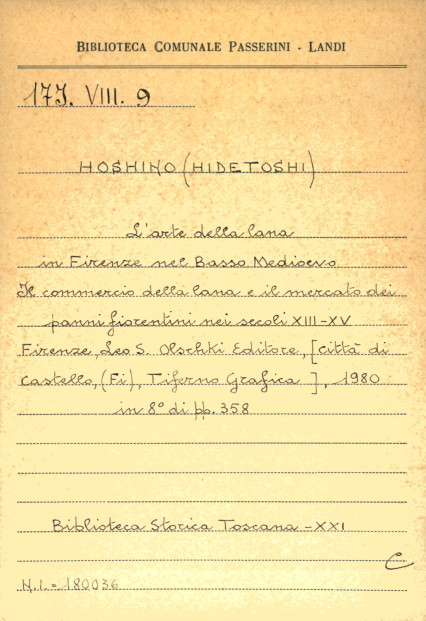 BIBLIOTECA COMUNALE PASSERINI - LANDI
17J. VIII. 9
HOSHINO (HIDETOSHI)
L'arte della lana
in Firenze nel Basso Medioevo
Il commercio della lana e il mercato dei
panni fiorentini nei secoli XIII-XV
Firenze, Leo S. Olschki Editore, [Città di
Castello, (Fi), Tiferno Grafica ], 1980
in 8° di pp. 358
Biblioteca Storica Toscana - XXI
C
N.I. = 180036